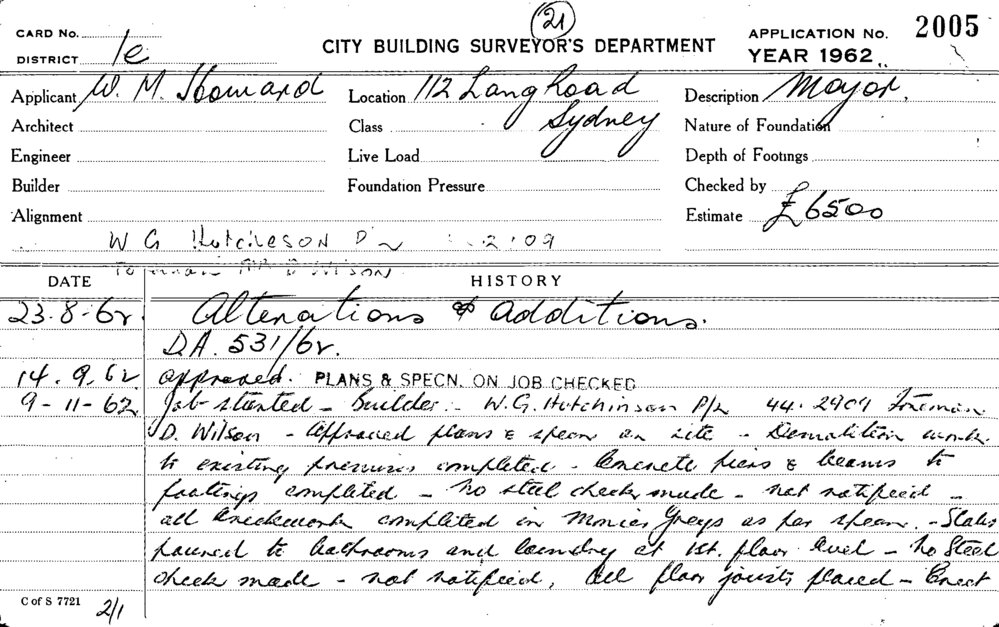 21
CARD No.
DISTRICT 1e
CITY BUILDING SURVEYOR'S DEPARTMENT
APPLICATION No. 2005
YEAR 1962
Applicant W. M. Howard Location 112 Lang Road Sydney Description Major.
Architect Class Nature of Foundation
Engineer Live Load Depth of Footings
Builder Foundation Pressure Checked by
Alignment Estimate £6500
W G Hutcheson P
DATE HISTORY
23-8-62 Alterations & Additions.
D.A. 531/62.
14.9.62 approved. PLANS & SPECN. ON JOB CHECKED
9-11-62 Job started - Builder:- W.G. Hutchinson P/L 44.2909 Foreman
D. Wilson - Approved plans & specn on site - Demolition work
to existing premises completed - Concrete piers & beams to
footings completed - No steel check made - not notified -
all brickwork completed in Monier Greys as per specn. - Slabs
poured to bathrooms and laundry at 1st. floor level - No Steel
check made - not notified, All floor joists placed - Erect
C of S 7721 2/1